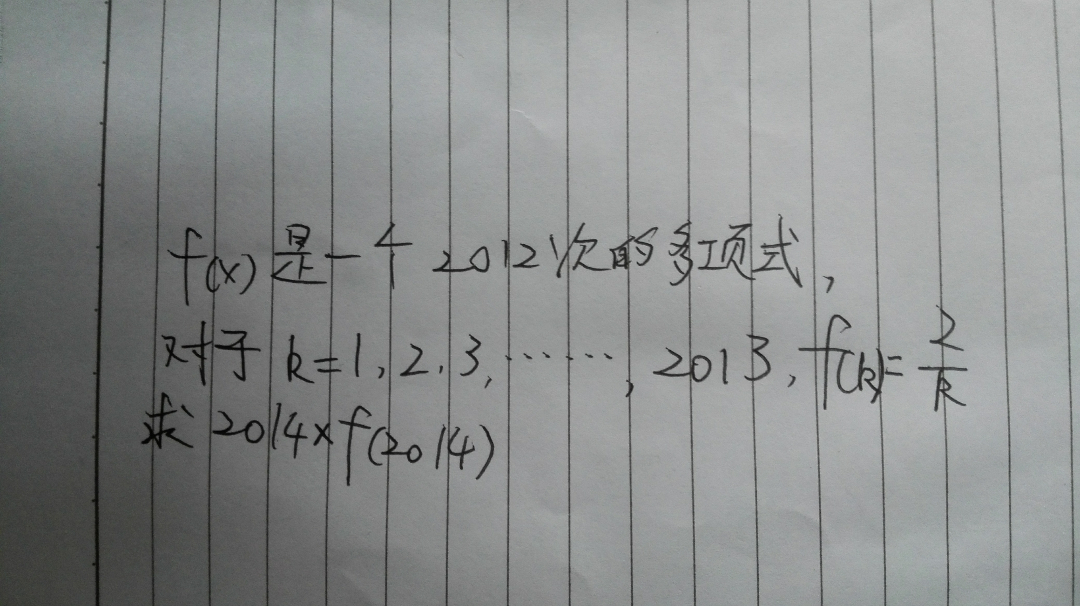 f(x)是一个2012次的多项式,
对于 k=1,2,3,……,2013,f(k)=2/k
求 2014×f(2014)